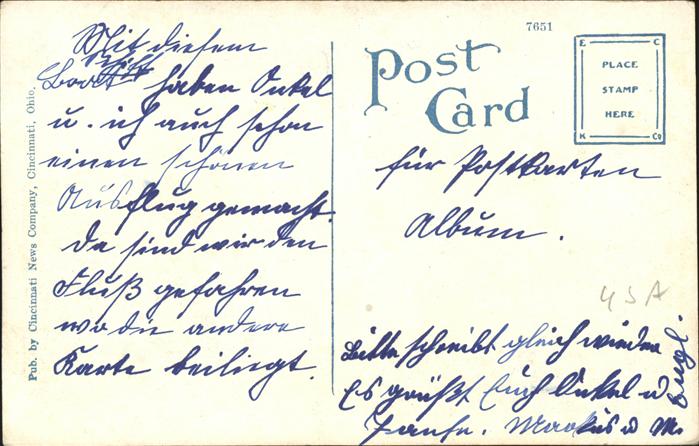 Mit diesem
Boot Schiff haben Onkel
u. ich auch schon
einen schönen
Ausflug gemacht.
Da sind wir den
Fluß gefahren
wo die andere
Karte beiliegt.
Pub. by Cincinnati News Company, Cincinnati, Ohio.
7651
Post
Card
E C
PLACE
STAMP
HERE
K Co
für Postkarten
Album.
USA
Bitte schreibt gleich wieder
Es grüßt Euch Onkel u
Tante. Markus u M.